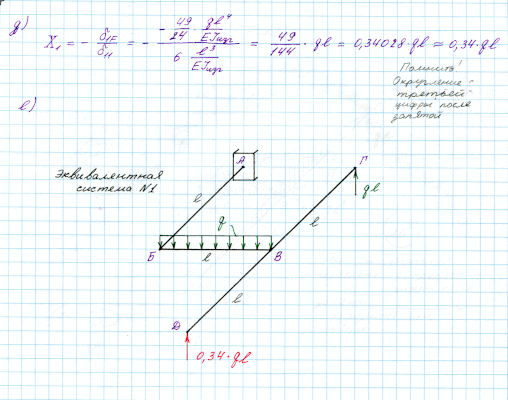 д)
X₁ = - δ₁F / δ₁₁ = - (- 49/24 ql⁴/EIизг) / (6 l³/EIизг) = 49/144 · ql = 0,34028·ql ≈ 0,34·ql
Помнить!
Округление -
третьей
цифры после
запятой
е)
Эквивалентная
система N1
А
Г
l
ql
q
l
Б
l
В
l
Д
0,34·ql